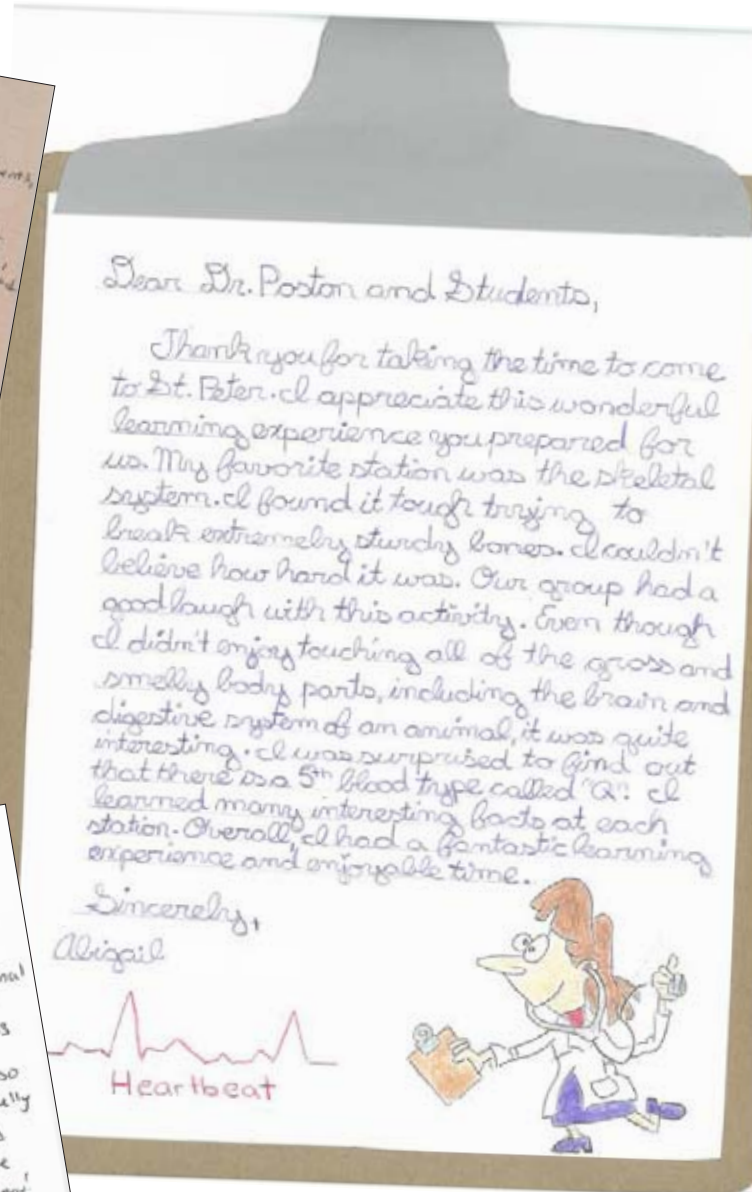 Dear Dr. Poston and Students,
Thank you for taking the time to come
to St. Peter. I appreciate this wonderful
learning experience you prepared for
us. My favorite station was the skeletal
system. I found it tough trying to
break extremely sturdy bones. I couldn't
believe how hard it was. Our group had a
good laugh with this activity. Even though
I didn't enjoy touching all of the gross and
smelly body parts, including the brain and
digestive system of an animal, it was quite
interesting. I was surprised to find out
that there is a 5th blood type called "Q". I
learned many interesting facts at each
station. Overall, I had a fantastic learning
experience and enjoyable time.
Sincerely,
Abigail
Heartbeat